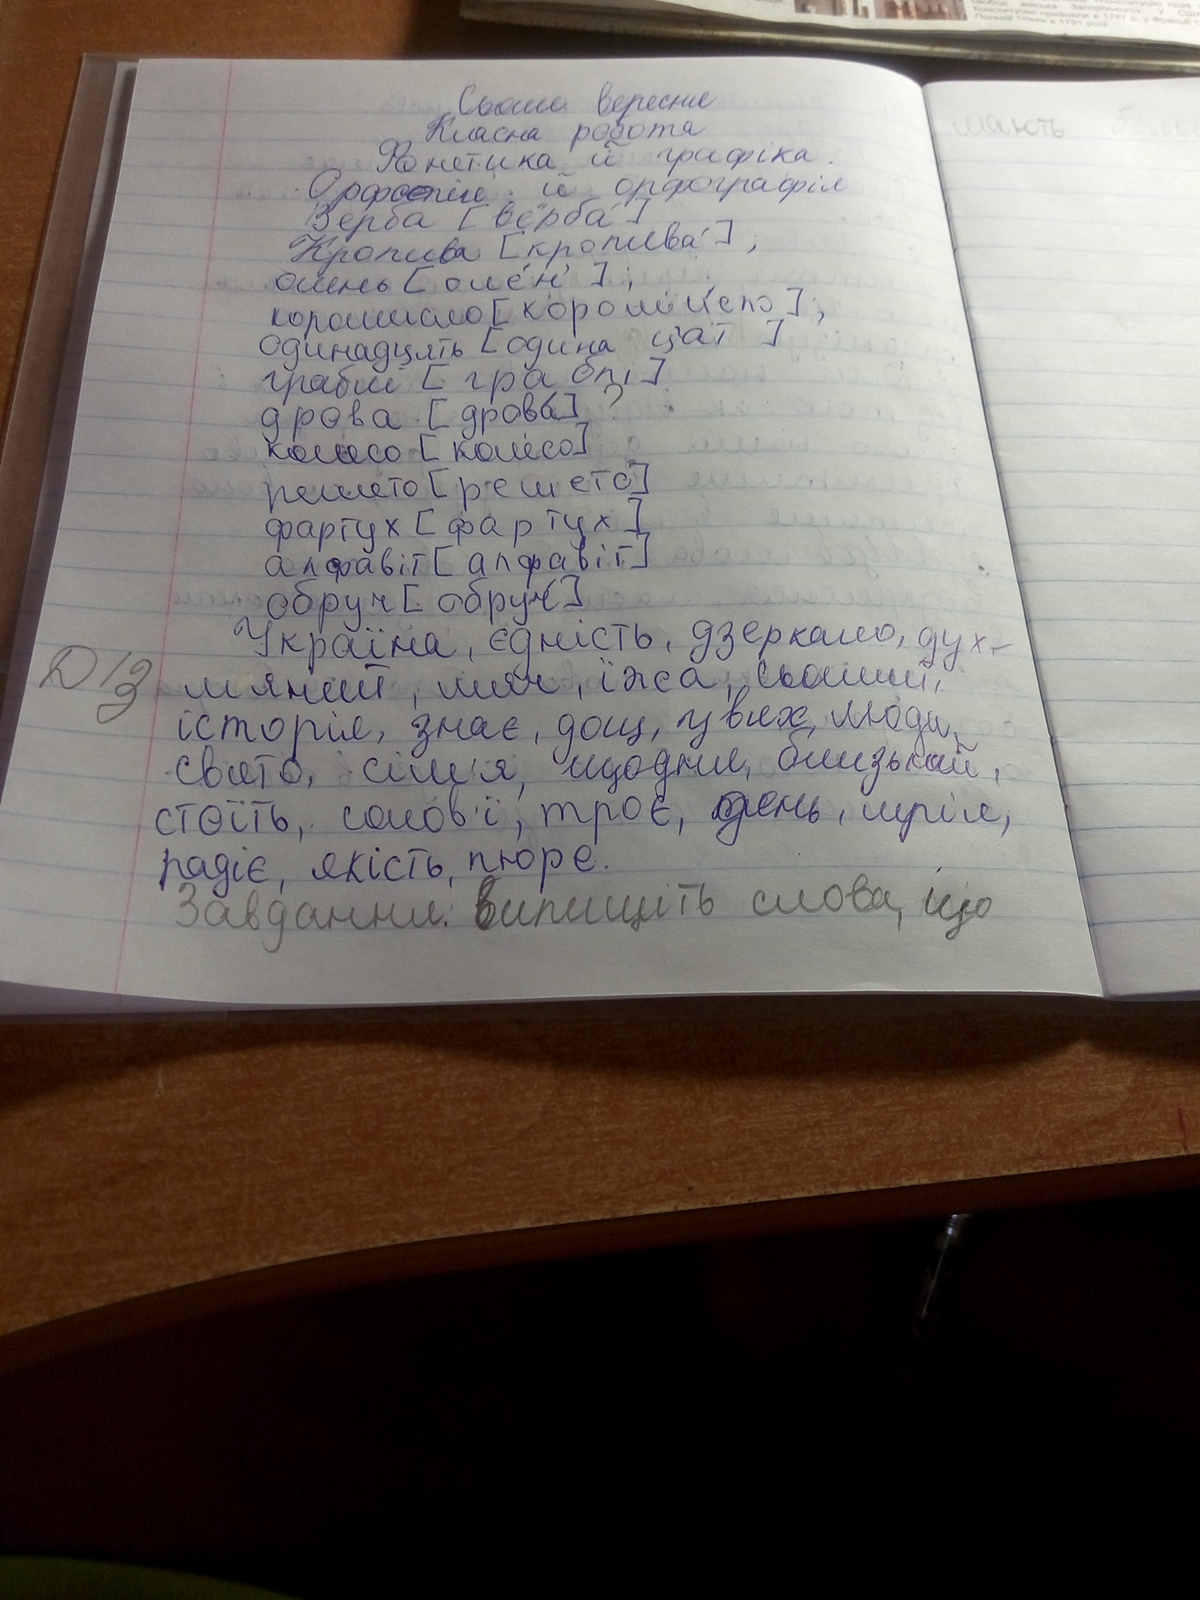 Конституцію прийняли в 1787 р., у Франції
Польщі тільки в 1791 році.
Сьоме вересня
Класна робота
Фонетика й графіка.
Орфоепія й орфографія
Верба [верба́]
Кропива [кропива́];
олень [оле́н'];
коромисло [коро́
одинадцять [одина ц'ат' ]
граблі [граблі]
дрова [дрова́] ?
колесо [ко́лесо]
решето [решето]
фартух [фартух]
алфавіт [алфавіт]
обруч [обруч]
Україна, єдність, дзеркало, дух-
мяний, м'яч, їжа, сьомий,
історія, знає, дощ, цвях, люди,
свято, сім'я, щодня, близький,
стоїть, солов'ї, троє, день, мрія,
радіє, якість, пюре.
Д/з
Завдання: випишіть слова, що
мають